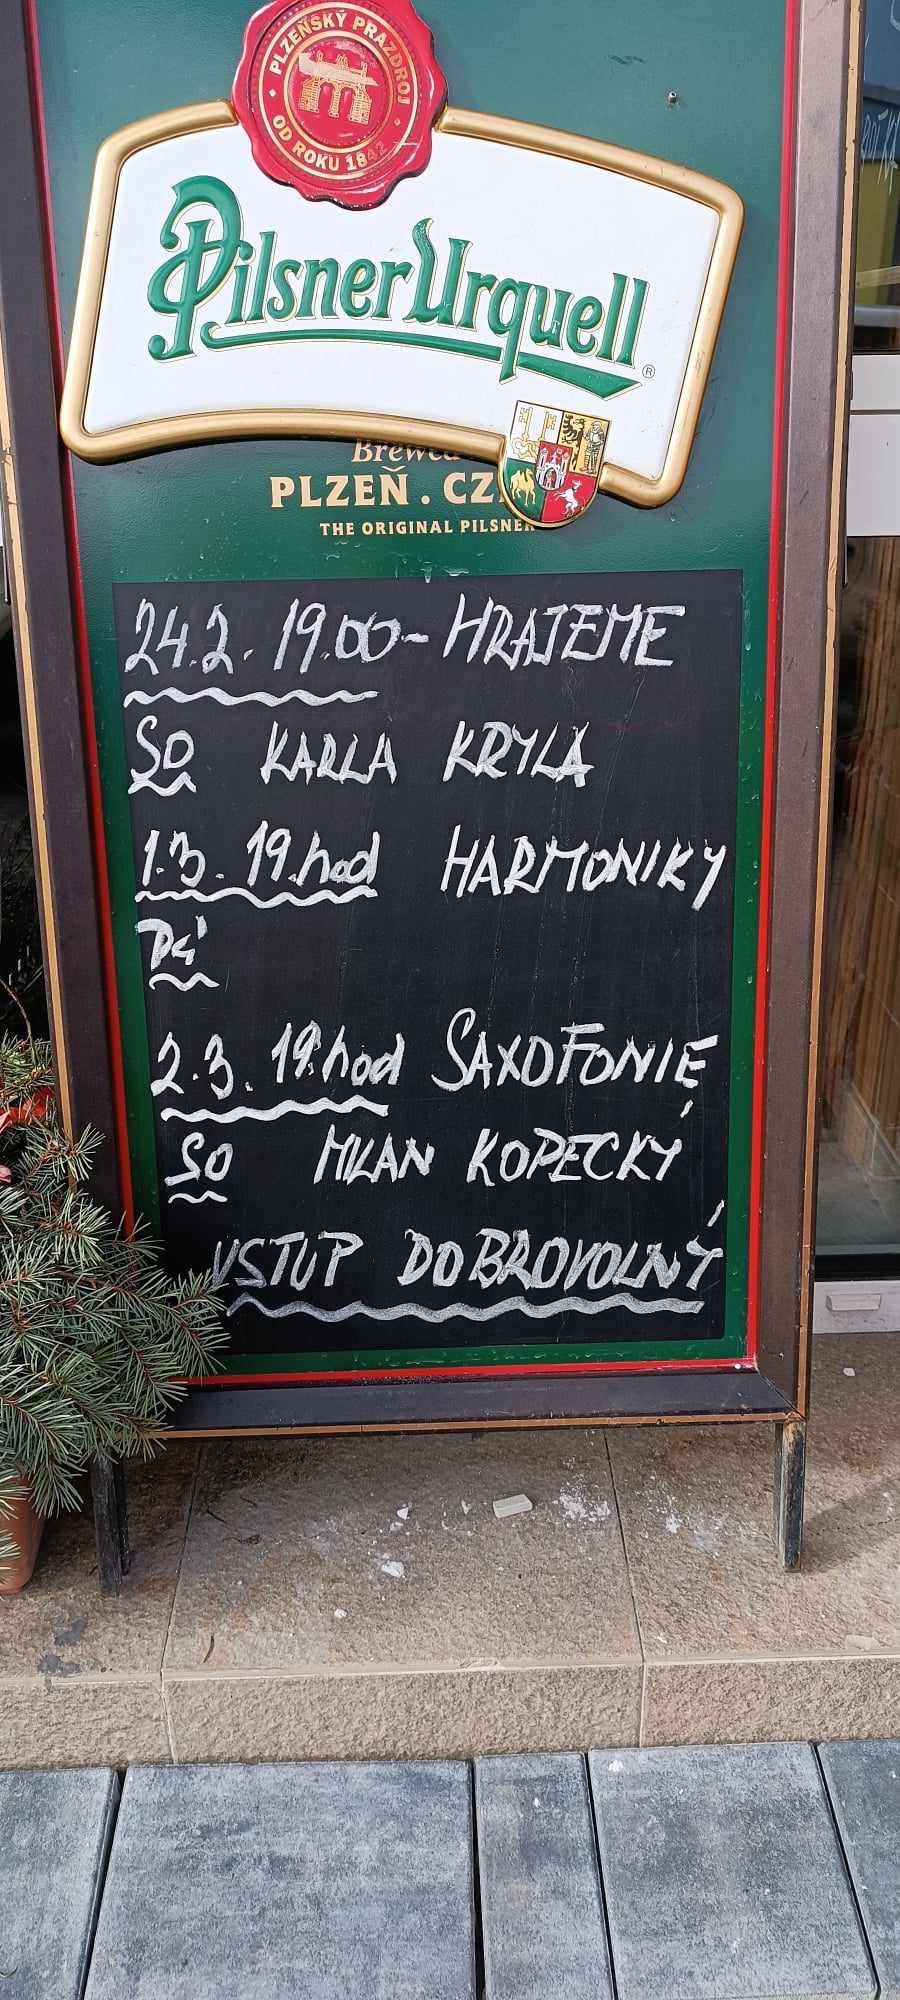 PLZEŇSKÝ PRAZDROJ
OD ROKU 1842
Pilsner Urquell
®
Brewed
PLZEŇ . CZ
THE ORIGINAL PILSNER
24.2. 19.00- HRAJEME
SO KARLA KRYLA
1.3. 19.hod HARMONIKY
Pá
2.3. 19.hod SAXOFONIE
SO MILAN KOPECKÝ
VSTUP DOBROVOLNÝ